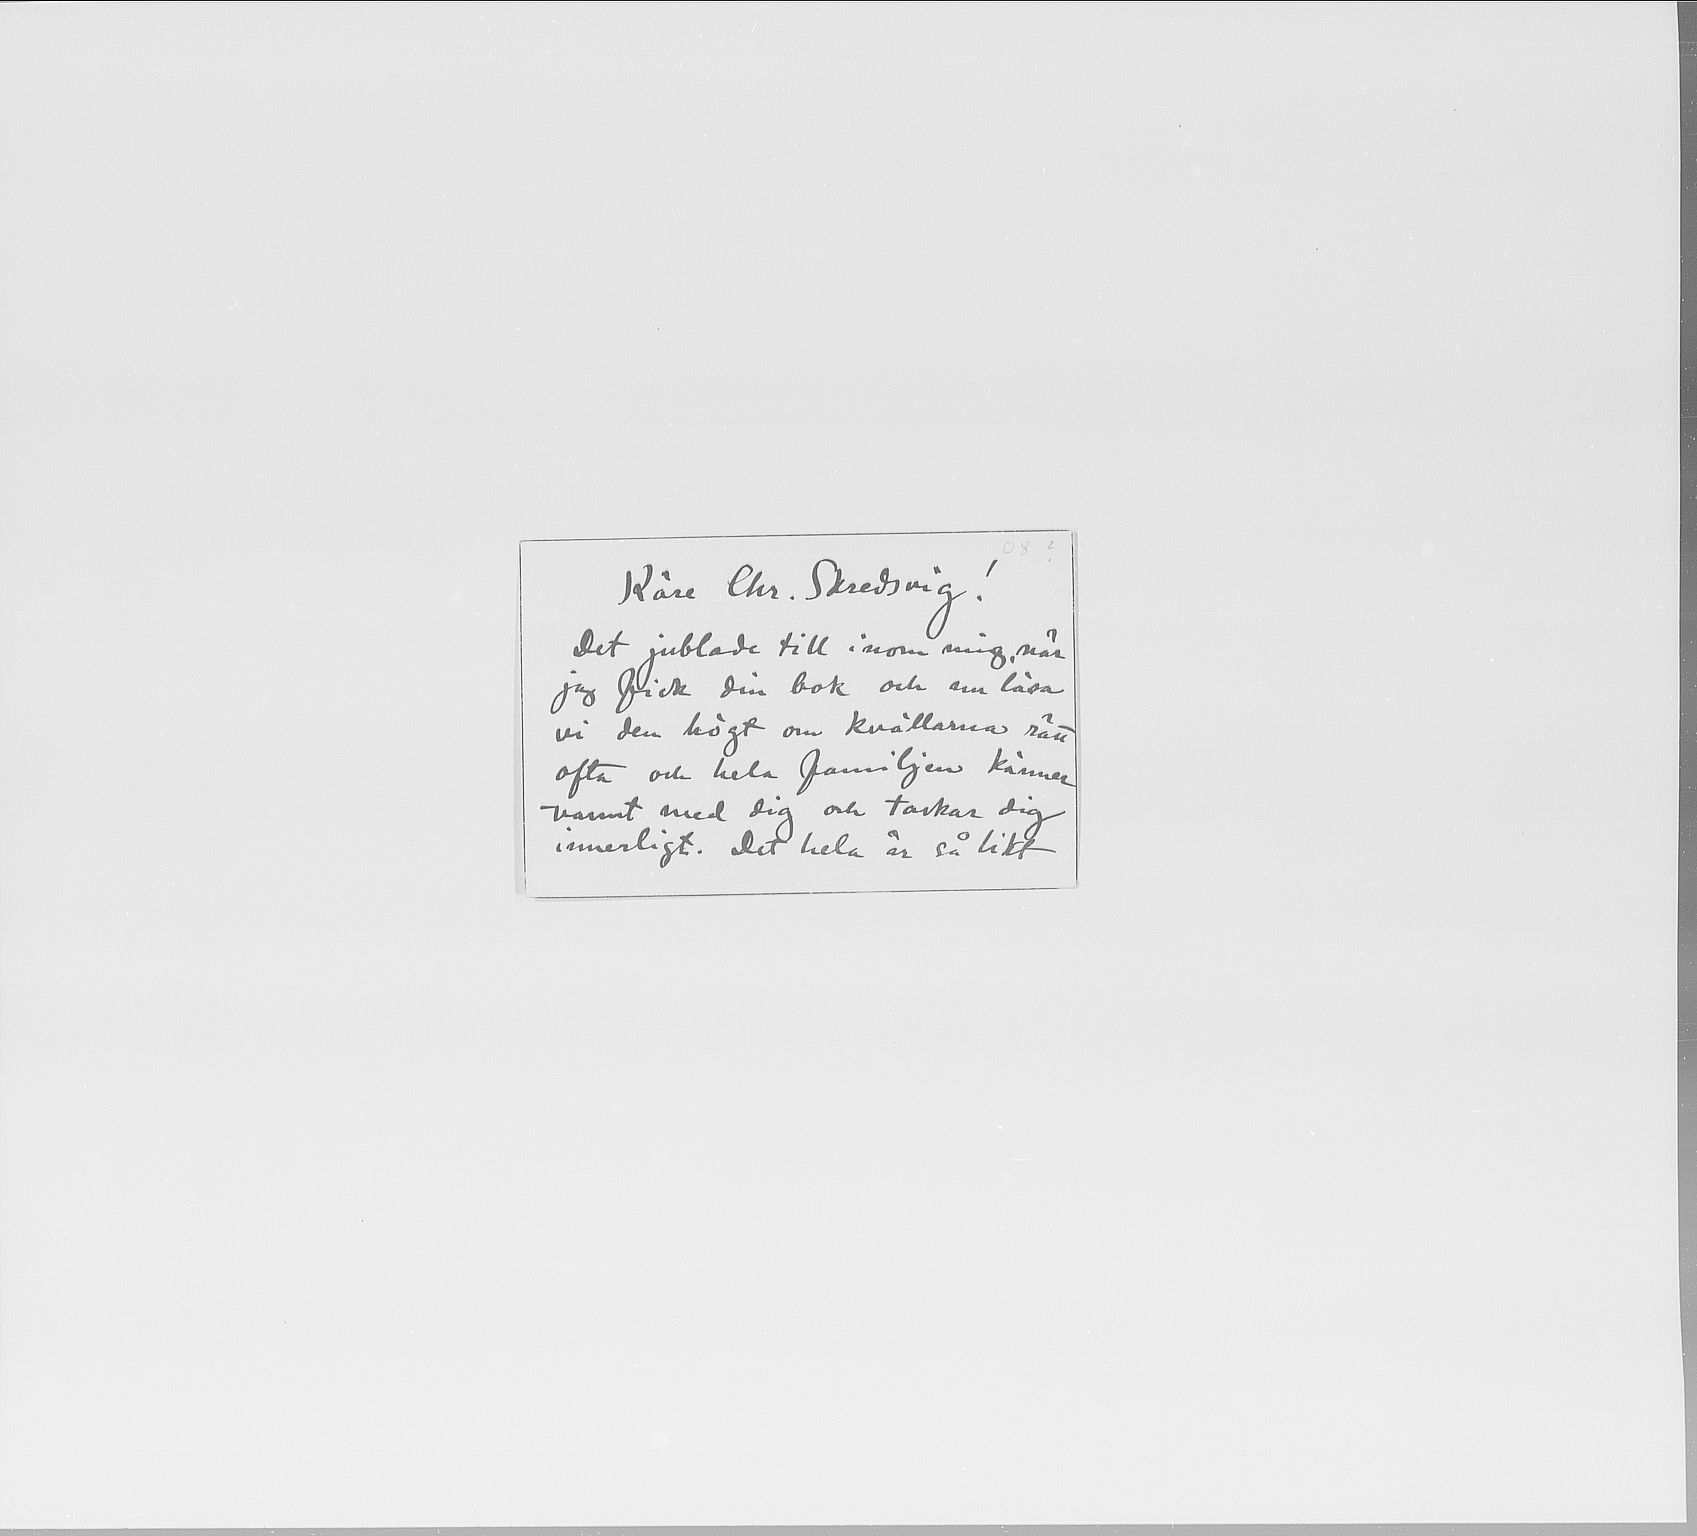 08 ?
Käre Chr. Skredsvig!
Det jublade till inom mig, när
jag fick din bok och nu läsa
vi den högt om kvällarna rätt
ofta och hela familjen känner
varmt med dig och tackar dig
innerligt. Det hela är så likt